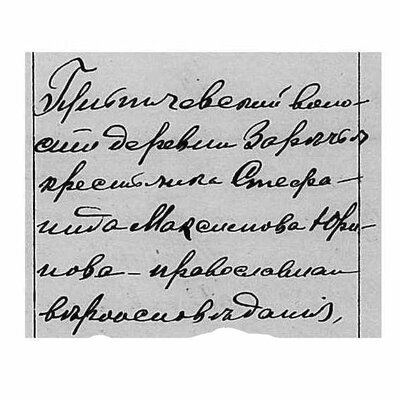 Притычевской воло-
сти деревни Заречья
крестьянка Стефа-
нида Максимова Юри-
нова - православнаго
вѣроисповѣданія,